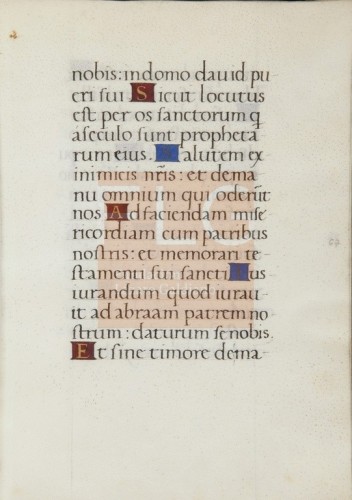 nobis: in domo dauid pu
eri sui Sicut locutus
est per os sanctorum q
á seculo sunt propheta
rum eius. Salutem ex
inimicis nr̃is: et de ma
nu omnium qui oderũt
nos Ad faciendam mise
ricordiam cum patribus
nostris: et memorari te
stamenti sui sancti Ius
iurandum quod iuraui
it ad abraam patrem no
strum: daturum se nobis
Et sine timore de ma-
FLC